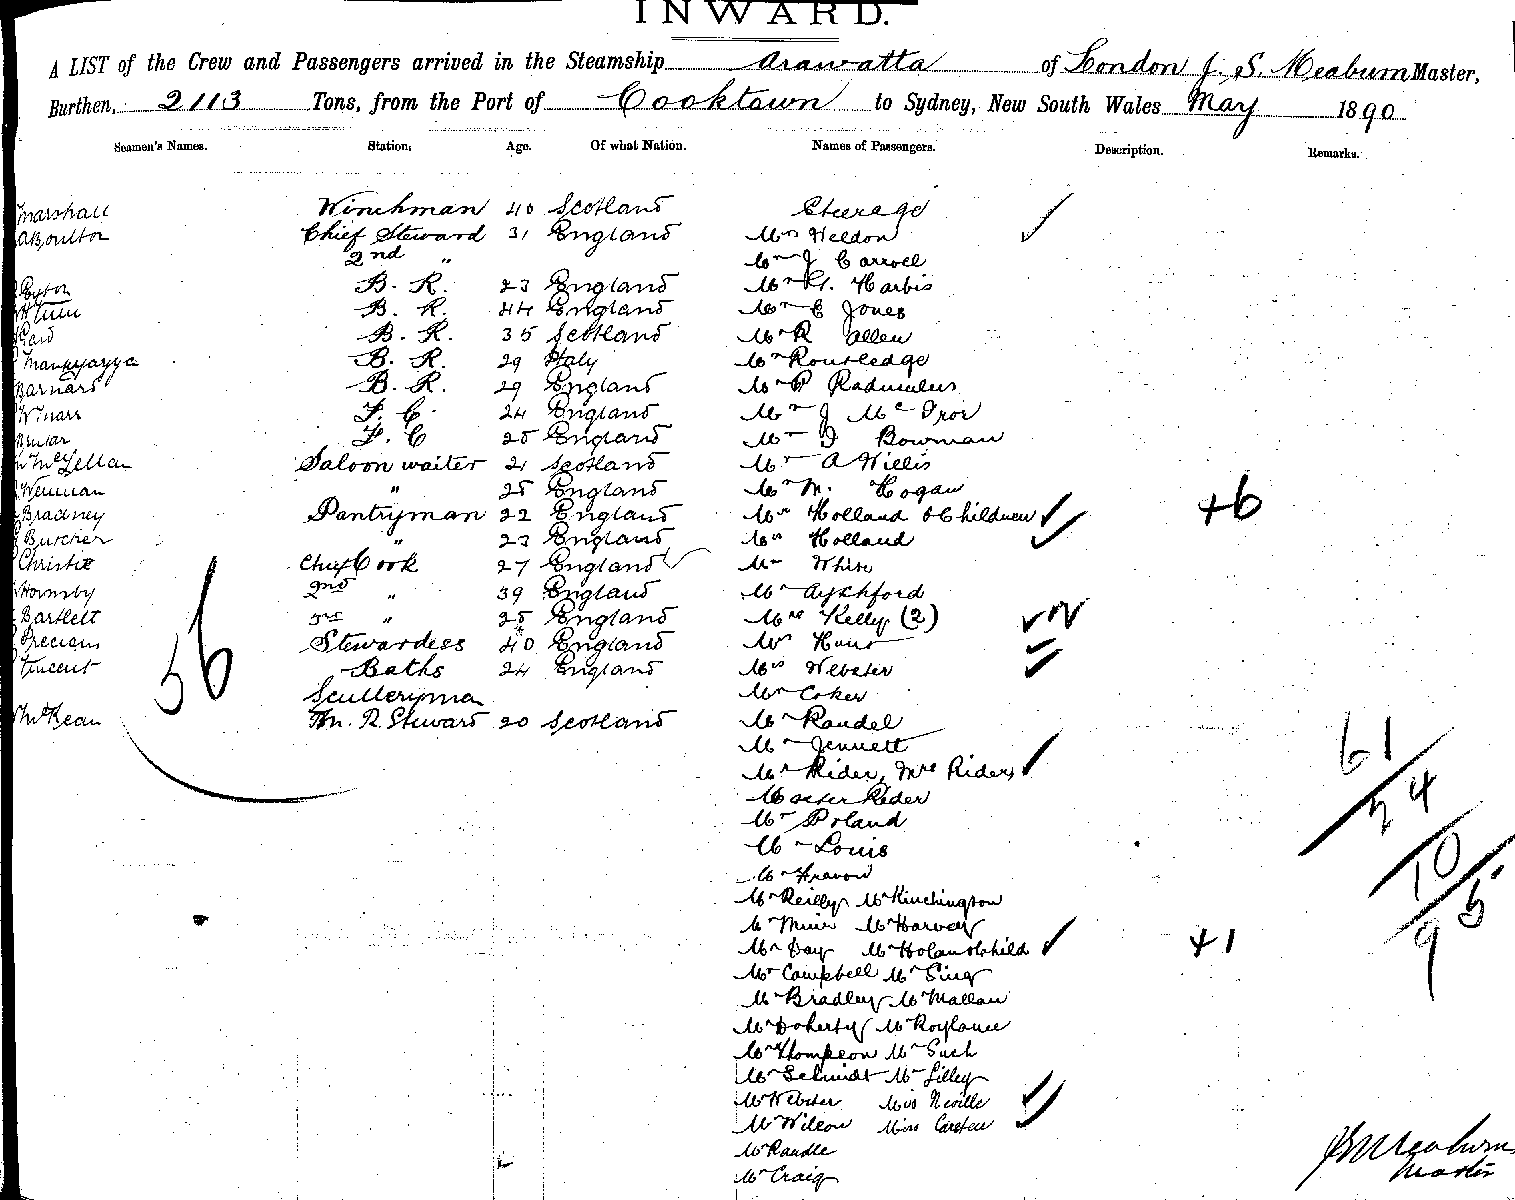 INWARD.
A LIST of the Crew and Passengers arrived in the Steamship Arawatta of London J. S. Meaburn Master,
Burthen, 2113 Tons, from the Port of Cooktown to Sydney, New South Wales May 1890
Seamen's Names. Station, Age. Of what Nation. Names of Passengers. Description. Remarks.
Marshall Winchman 40 Scotland Steerage
Boulton Chief Steward 31 England Mrs Weldon
2nd " Mr J Carroll
B. R. 23 England Mr Harbis
B. R. 44 England Mr C Jones
B. R. 35 Scotland Mr R Allen
B. R. 29 Italy Mr Routledge
Barnard B. R. 29 England Mr
F. C. 24 England Mr J Mc
F. C 25 England Mr Bowman
McLellan Saloon waiter 21 Scotland Mr A Willis
Wenman " 25 England Mr M. Hogan
Bradney Pantryman 22 England Mrs Holland & Children +6
Burcher " 23 England Mrs Holland
Christie Chief Cook 27 England Mr White
Hornsby 2nd " 39 England Mr Ayshford
Bartlett 3rd " 25 England Mrs Kelly (2)
Stewardess 40 England Mrs Hunt
Vincent Baths 24 England Mrs Webster
56
Sculleryman Mr Coker
McBean Fm. R. Steward 20 Scotland Mr Randel
Mr Jennett
Mr Rider, Mrs Rider
Master Rider
Mr Poland
Mr Louis
Mr
Mr Reilly Mr Kinchington
Mr Muir Mr Harvey
Mr Day & Child +1
Mr Campbell Mr Sing
Mr Bradley Mr Mallan
Mr Doherty Mr Roylance
Mr Thompson Mr Such
Mr Schmidt Mr Lilley
Mr Webster Miss Neville
Mr Wilson Miss Carsten
Mr Randle
Mr Craig
61
24
10
5
9
J S Meaburn
Master